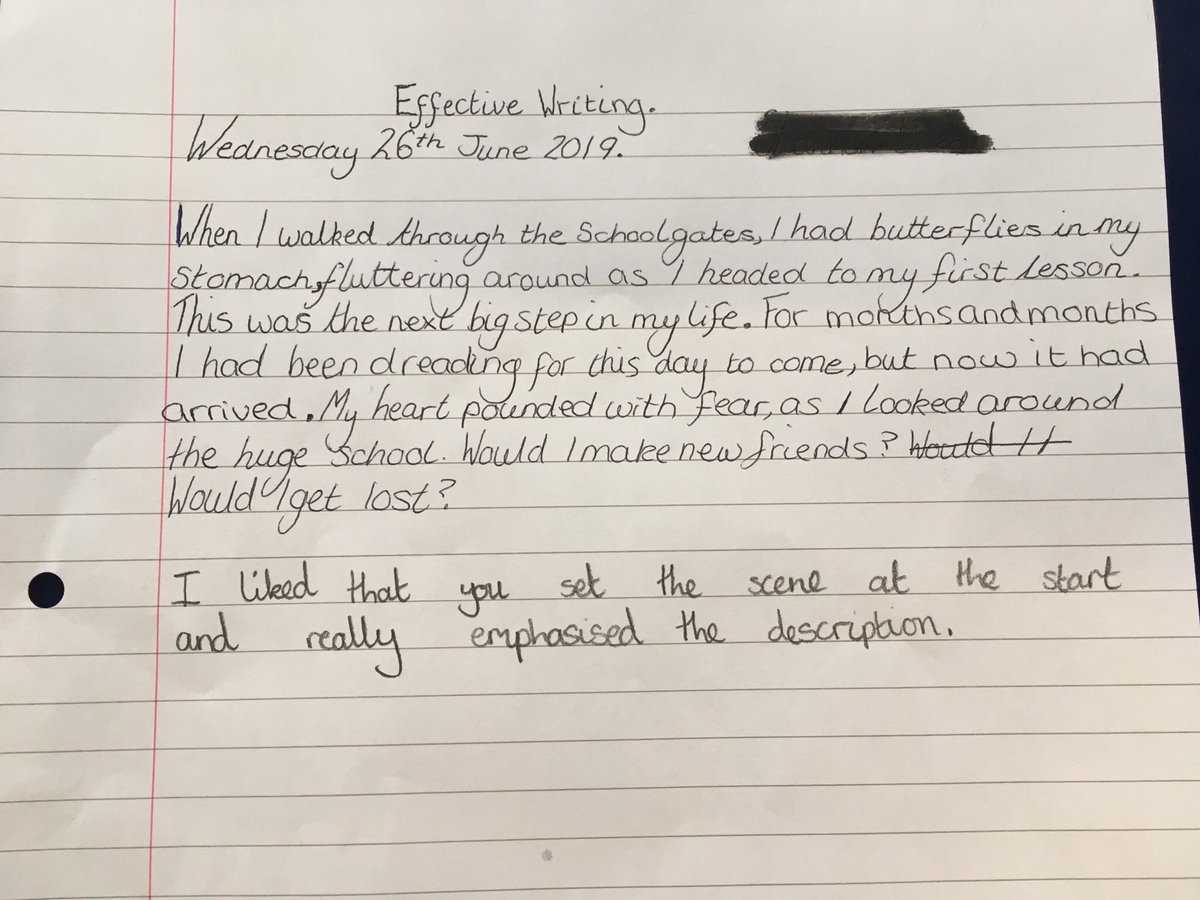 Effective Writing.
Wednesday 26th June 2019.
When I walked through the Schoolgates, I had butterflies in my
Stomach, fluttering around as I headed to my first lesson.
This was the next big step in my life. For months and months
I had been dreading for this day to come, but now it had
arrived. My heart pounded with fear, as I looked around
the huge school. Would I make new friends? Would It
Would I get lost?
I liked that you set the scene at the start
and really emphasised the description.